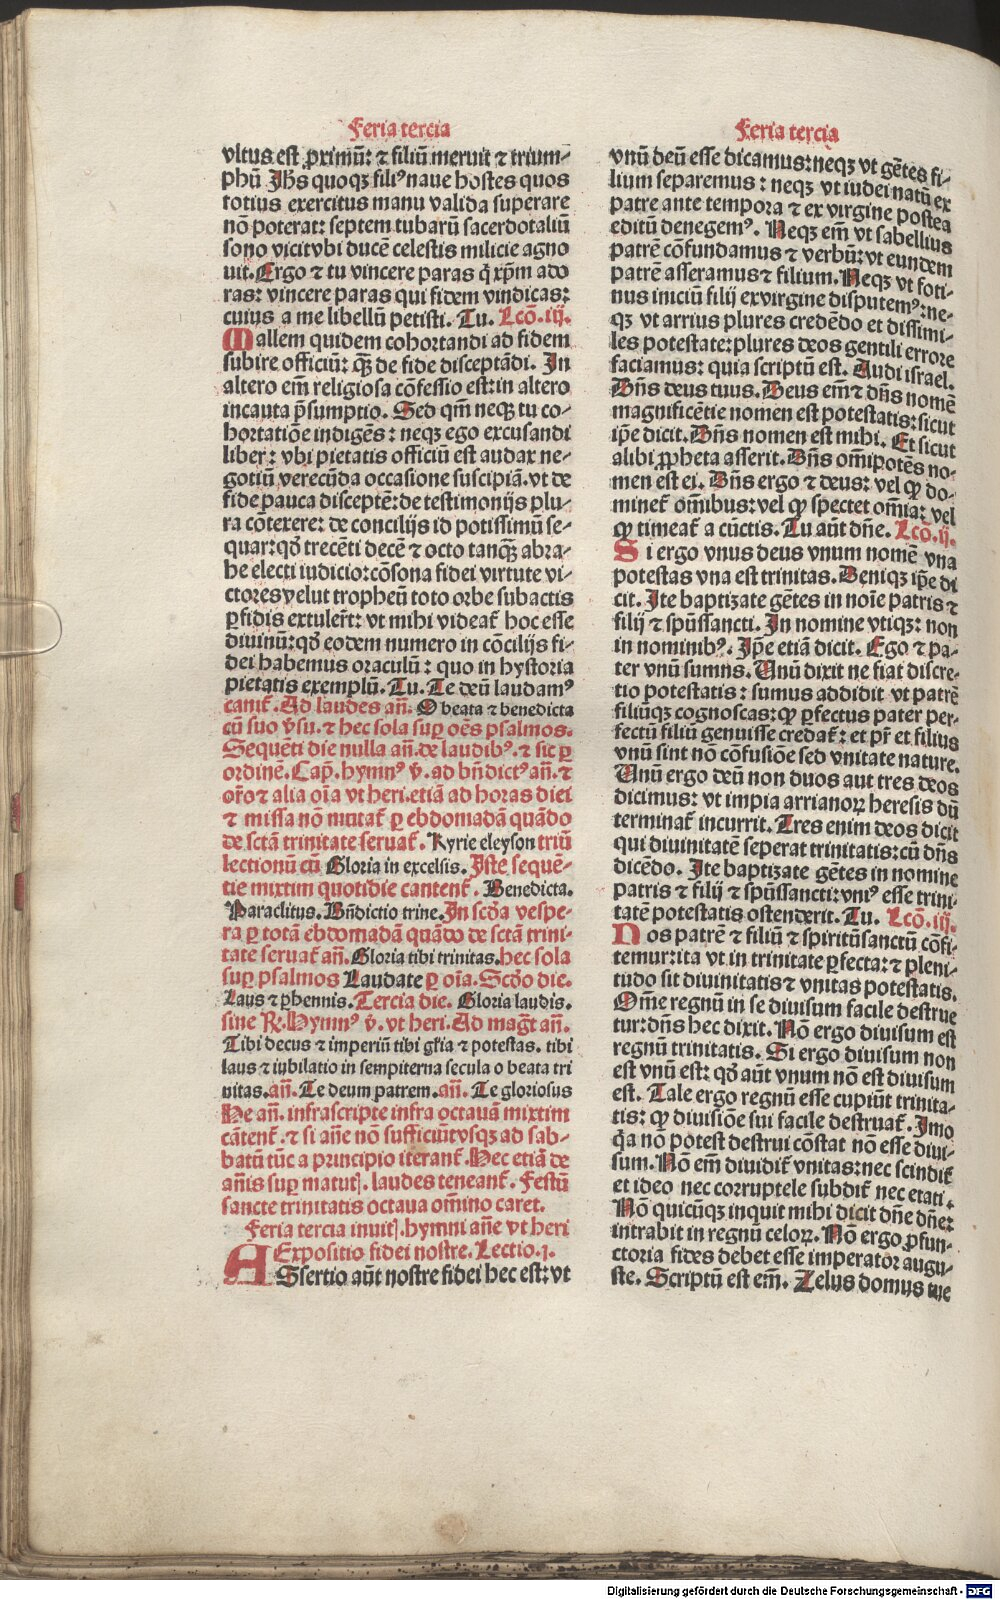 Feria tercia
vltus est ꝓximū: ⁊ filiū meruit ⁊ trium-
phū Jh̄s quoqꝫ filiꝰ naue hostes quos
totius exercitus manu valida superare
nō poterat: septem tubarū sacerdotaliū
sono vicit vbi ducē celestis milicie agno
uit. Ergo ⁊ tu vincere paras q̄ xp̄m ado
ras: vincere paras qui fidem vindicas:
cuius a me libellū petisti. Tu. Lcō. iij.
Mallem quidem cohortandi ad fidem
subire officiū: qꝫ̄ de fide disceptādi. In
altero em̄ religiosa cōfessio est: in altero
incauta p̄sumptio. Sed qm̄ neqꝫ tu co-
hortatiōe indigēs: neqꝫ ego excusandi
liber: vbi pietatis officiū est audax ne-
gotiū verecūda occasione suscipiā. vt de
fide pauca disceptē: de testimonijs plu-
ra cōtexere: de concilijs id potissimū se-
quar: qō trecēti decē ⁊ octo tanqꝫ̄ abra-
he electi iudicio: cōsona fidei virtute vi-
ctores velut tropheū toto orbe subactis
ꝑfidis extuler̄t: vt mihi videat᷑ hoc esse
diuinū: qō eodem numero in cōcilijs fi-
dei habemus oraculū: quo in hystoria
pietatis exemplū. Tu. Te deū laudamꝰ
canit᷑. Ad laudes an̄. O beata ⁊ benedicta
cū suo v̄su. ⁊ hec sola sup̄ oēs psalmos.
Sequēti die nulla an̄. de laudibꝰ. ⁊ sic ꝑ
ordinē. Cap̄. hymnꝰ v̄. ad bn̄dictꝰ an̄. ⁊
or̄o ⁊ alia oīa vt heri. etiā ad horas diei
⁊ missa nō mutat᷑ ꝑ ebdomadā quādo
de sctā trinitate seruat᷑. Kyrie eleyson triū
lectionū cū Gloria in excelsis. Iste sequē-
tie mixtim quotidie cantent᷑. Benedicta.
Paraclitus. Bn̄dictio trine. In scōa vespe-
ra ꝑ totā ebdomadā quādo de sctā trini-
tate seruat᷑ an̄. Gloria tibi trinitas. hec sola
sup̄ psalmos Laudate ꝑ oīa. Scōo die.
Laus ⁊ ꝑhennis. Tercia die. Gloria laudis.
sine R̄. Hymnꝰ v̄. vt heri. Ad maḡt an̄.
Tibi decus ⁊ imperiū tibi gl̄ia ⁊ potestas. tibi
laus ⁊ iubilatio in sempiterna secula o beata tri
nitas. an̄. Te deum patrem. an̄. Te gloriosus
He an̄. infrascripte infra octauā mixtim
cātent᷑. ⁊ si an̄e nō sufficiūt vsqꝫ ad sab-
batū tūc a principio iterant᷑. Hec etiā de
an̄is sup̄ matut. laudes teneant᷑. Festū
sancte trinitatis octaua om̄ino caret.
Feria tercia inuit. hymni an̄e vt heri
Expositio fidei nostre. Lectio. j.
ASsertio aūt nostre fidei hec est: vt
Feria tercia
vnū deū esse dicamus: neqꝫ vt gētes fi-
lium separemus: neqꝫ vt iudei natū ex
patre ante tempora ⁊ ex virgine postea
editū denegemꝰ. Neqꝫ em̄ vt sabellius
patrē cōfundamus ⁊ verbū: vt eundem
patrē asseramus ⁊ filium. Neqꝫ vt foti-
nus iniciū filij ex virgine disputemꝰ: ne-
qꝫ vt arrius plures credēdo et dissimi-
les potestate: plures deos gentili errore
faciamus: quia scriptū est. Audi israel.
Dn̄s deus tuus. Deus em̄ ⁊ dn̄s nomē
magnificētie nomen est potestatis: sicut
ip̄e dicit. Dn̄s nomen est mihi. Et sicut
alibi ꝓpheta asserit. Dn̄s om̄ipotēs no-
men est ei. Dn̄s ergo ⁊ deus: vel qꝫ do-
minet᷑ om̄ibus: vel qꝫ spectet om̄ia: vel
qꝫ timeat᷑ a cūctis. Tu aūt dn̄e. Lcō. ij.
Si ergo vnus deus vnum nomē vna
potestas vna est trinitas. Deniqꝫ ip̄e di
cit. Ite baptizate gētes in noīe patris ⁊
filij ⁊ spūssancti. In nomine vtiqꝫ: non
in nominibꝰ. Ip̄e etiā dicit. Ego ⁊ pa-
ter vnū sumus. Unū dixit ne fiat discre-
tio potestatis: sumus addidit vt patrē
filiūqꝫ cognoscas: qꝫ ꝑfectus pater per-
fectū filiū genuisse credat᷑: et pr̄ et filius
vnū sint nō cōfusiōe sed vnitate nature.
Unū ergo deū non duos aut tres deos
dicimus: vt impia arrianoꝝ heresis dū
terminat᷑ incurrit. Tres enim deos dicit
qui diuinitatē seperat trinitatis: cū dn̄s
dicēdo. Ite baptizate gētes in nomine
patris ⁊ filij ⁊ spūssancti: vniꝰ esse trini
tatē potestatis ostenderit. Tu. Lcō. iij.
Nos patrē ⁊ filiū ⁊ spiritūsanctū cōfi-
temur: ita vt in trinitate ꝑfecta: ⁊ pleni-
tudo sit diuinitatis ⁊ vnitas potestatis.
Om̄e regnū in se diuisum facile destrue
tur: dn̄s hec dixit. Nō ergo diuisum est
regnū trinitatis. Si ergo diuisum non
est vnū est: qō aūt vnum nō est diuisum
est. Tale ergo regnū esse cupiūt trinita-
tis: qꝫ diuisiōe sui facile destruat᷑. Imo
q̄a nō potest destrui cōstat nō esse diui-
sum. Nō em̄ diuidit᷑ vnitas: nec scindit᷑
et ideo nec corruptele subdit᷑ nec etati.
Nō quicūqꝫ inquit mihi dicit dn̄e dn̄e:
intrabit in regnū celoꝝ. Nō ergo ꝓfun-
ctoria fides debet esse imperator augu-
ste. Scriptū est em̄. Zelus domus tue
Digitalisierung gefördert durch die Deutsche Forschungsgemeinschaft - DFG